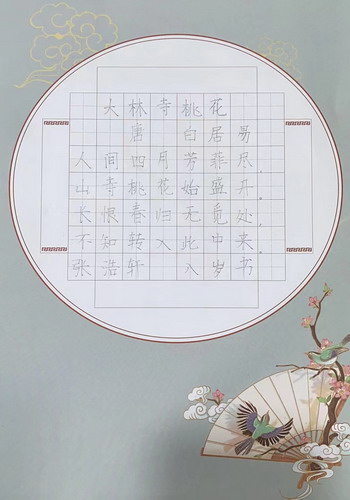 大林寺桃花
唐 白居易
人间四月芳菲尽,
山寺桃花始盛开.
长恨春归无觅处,
不知转入此中来.
张浩轩 八岁书